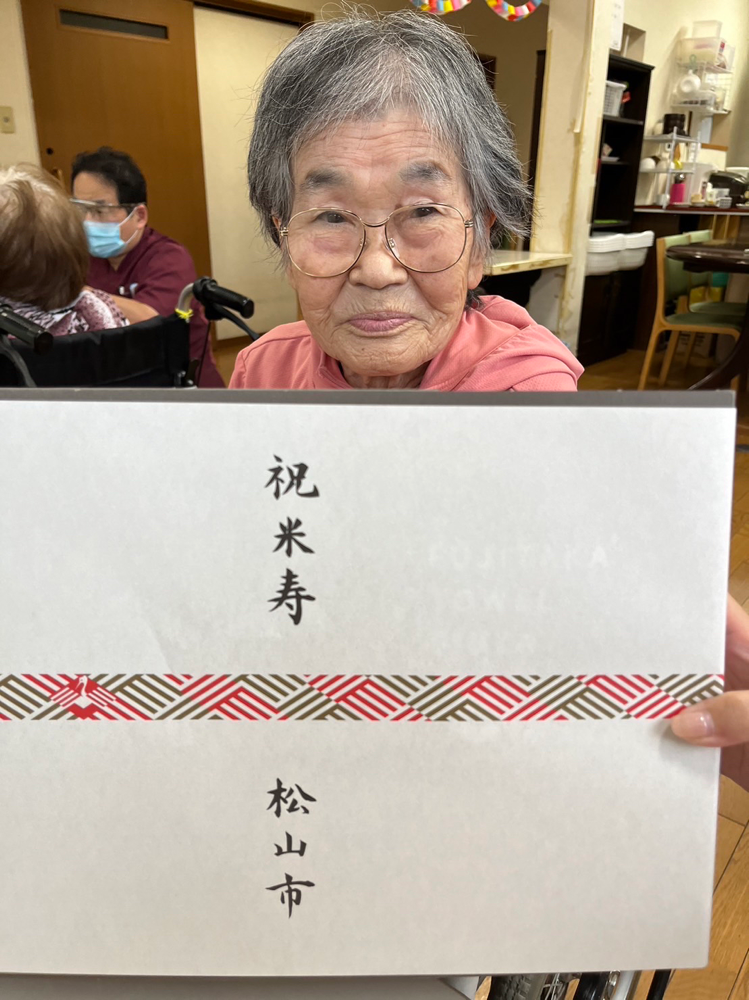 祝米寿
松山市